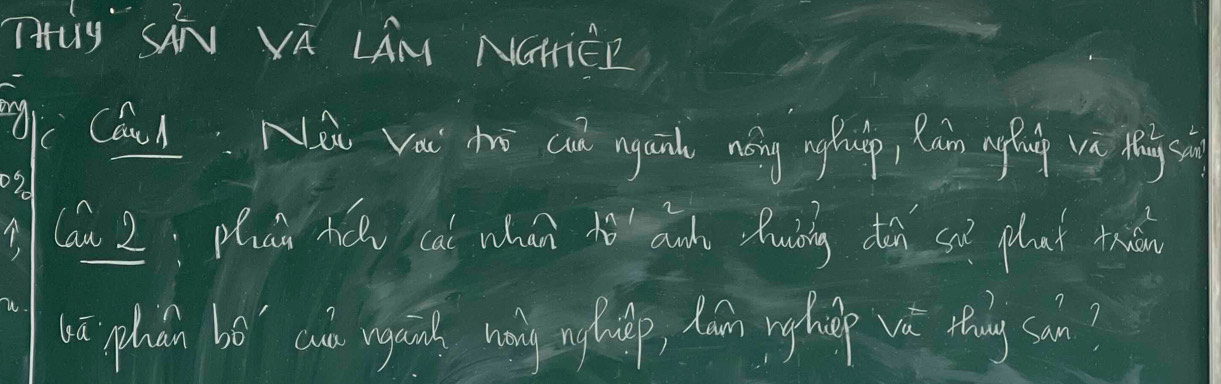 THỦY SẢN VÀ LÂM NGHIỆP
Câu 1 : Nêu vai trò của ngành nông nghiệp, lâm nghiệp và thủy sản?
0%
Câu 2 : phân tích các nhân tố ảnh hưởng đến sự phát triển
và phân bố của ngành nông nghiệp, lâm nghiệp và thủy sản?